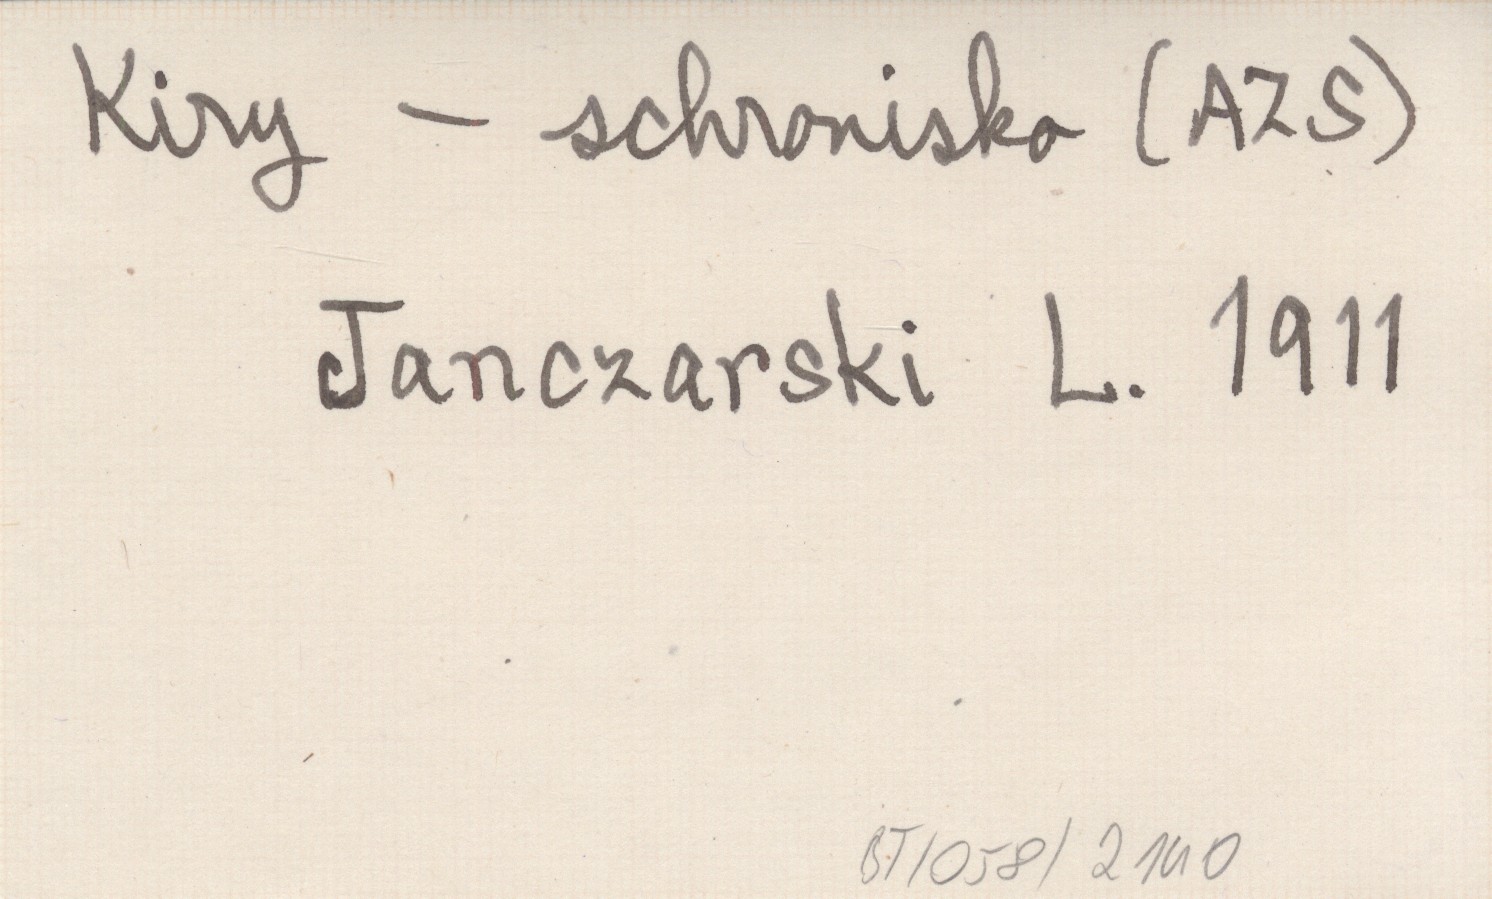 Kiry – schronisko (AZS)
Janczarski L. 1911
BT/058/2140